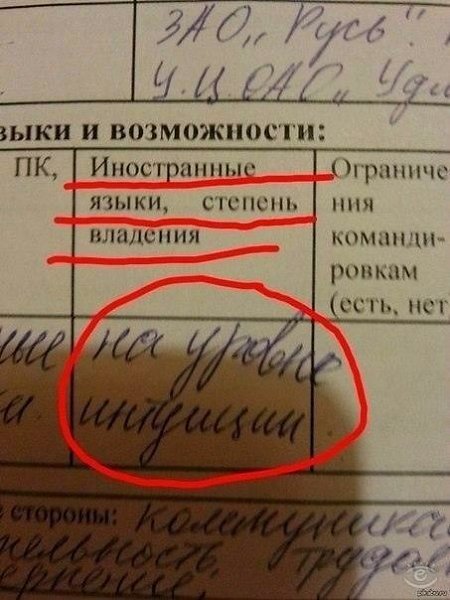 ЗАО „Русь".
У.Ц.ОАО „Удм
зыки и возможности:
ПК,
Иностранные
языки, степень
владения
Ограниче
ния
команди-
ровкам
(есть, нет
ные
на уровне
интуиции.
е стороны: коммуника
тельность, трудов
pikabu.ru